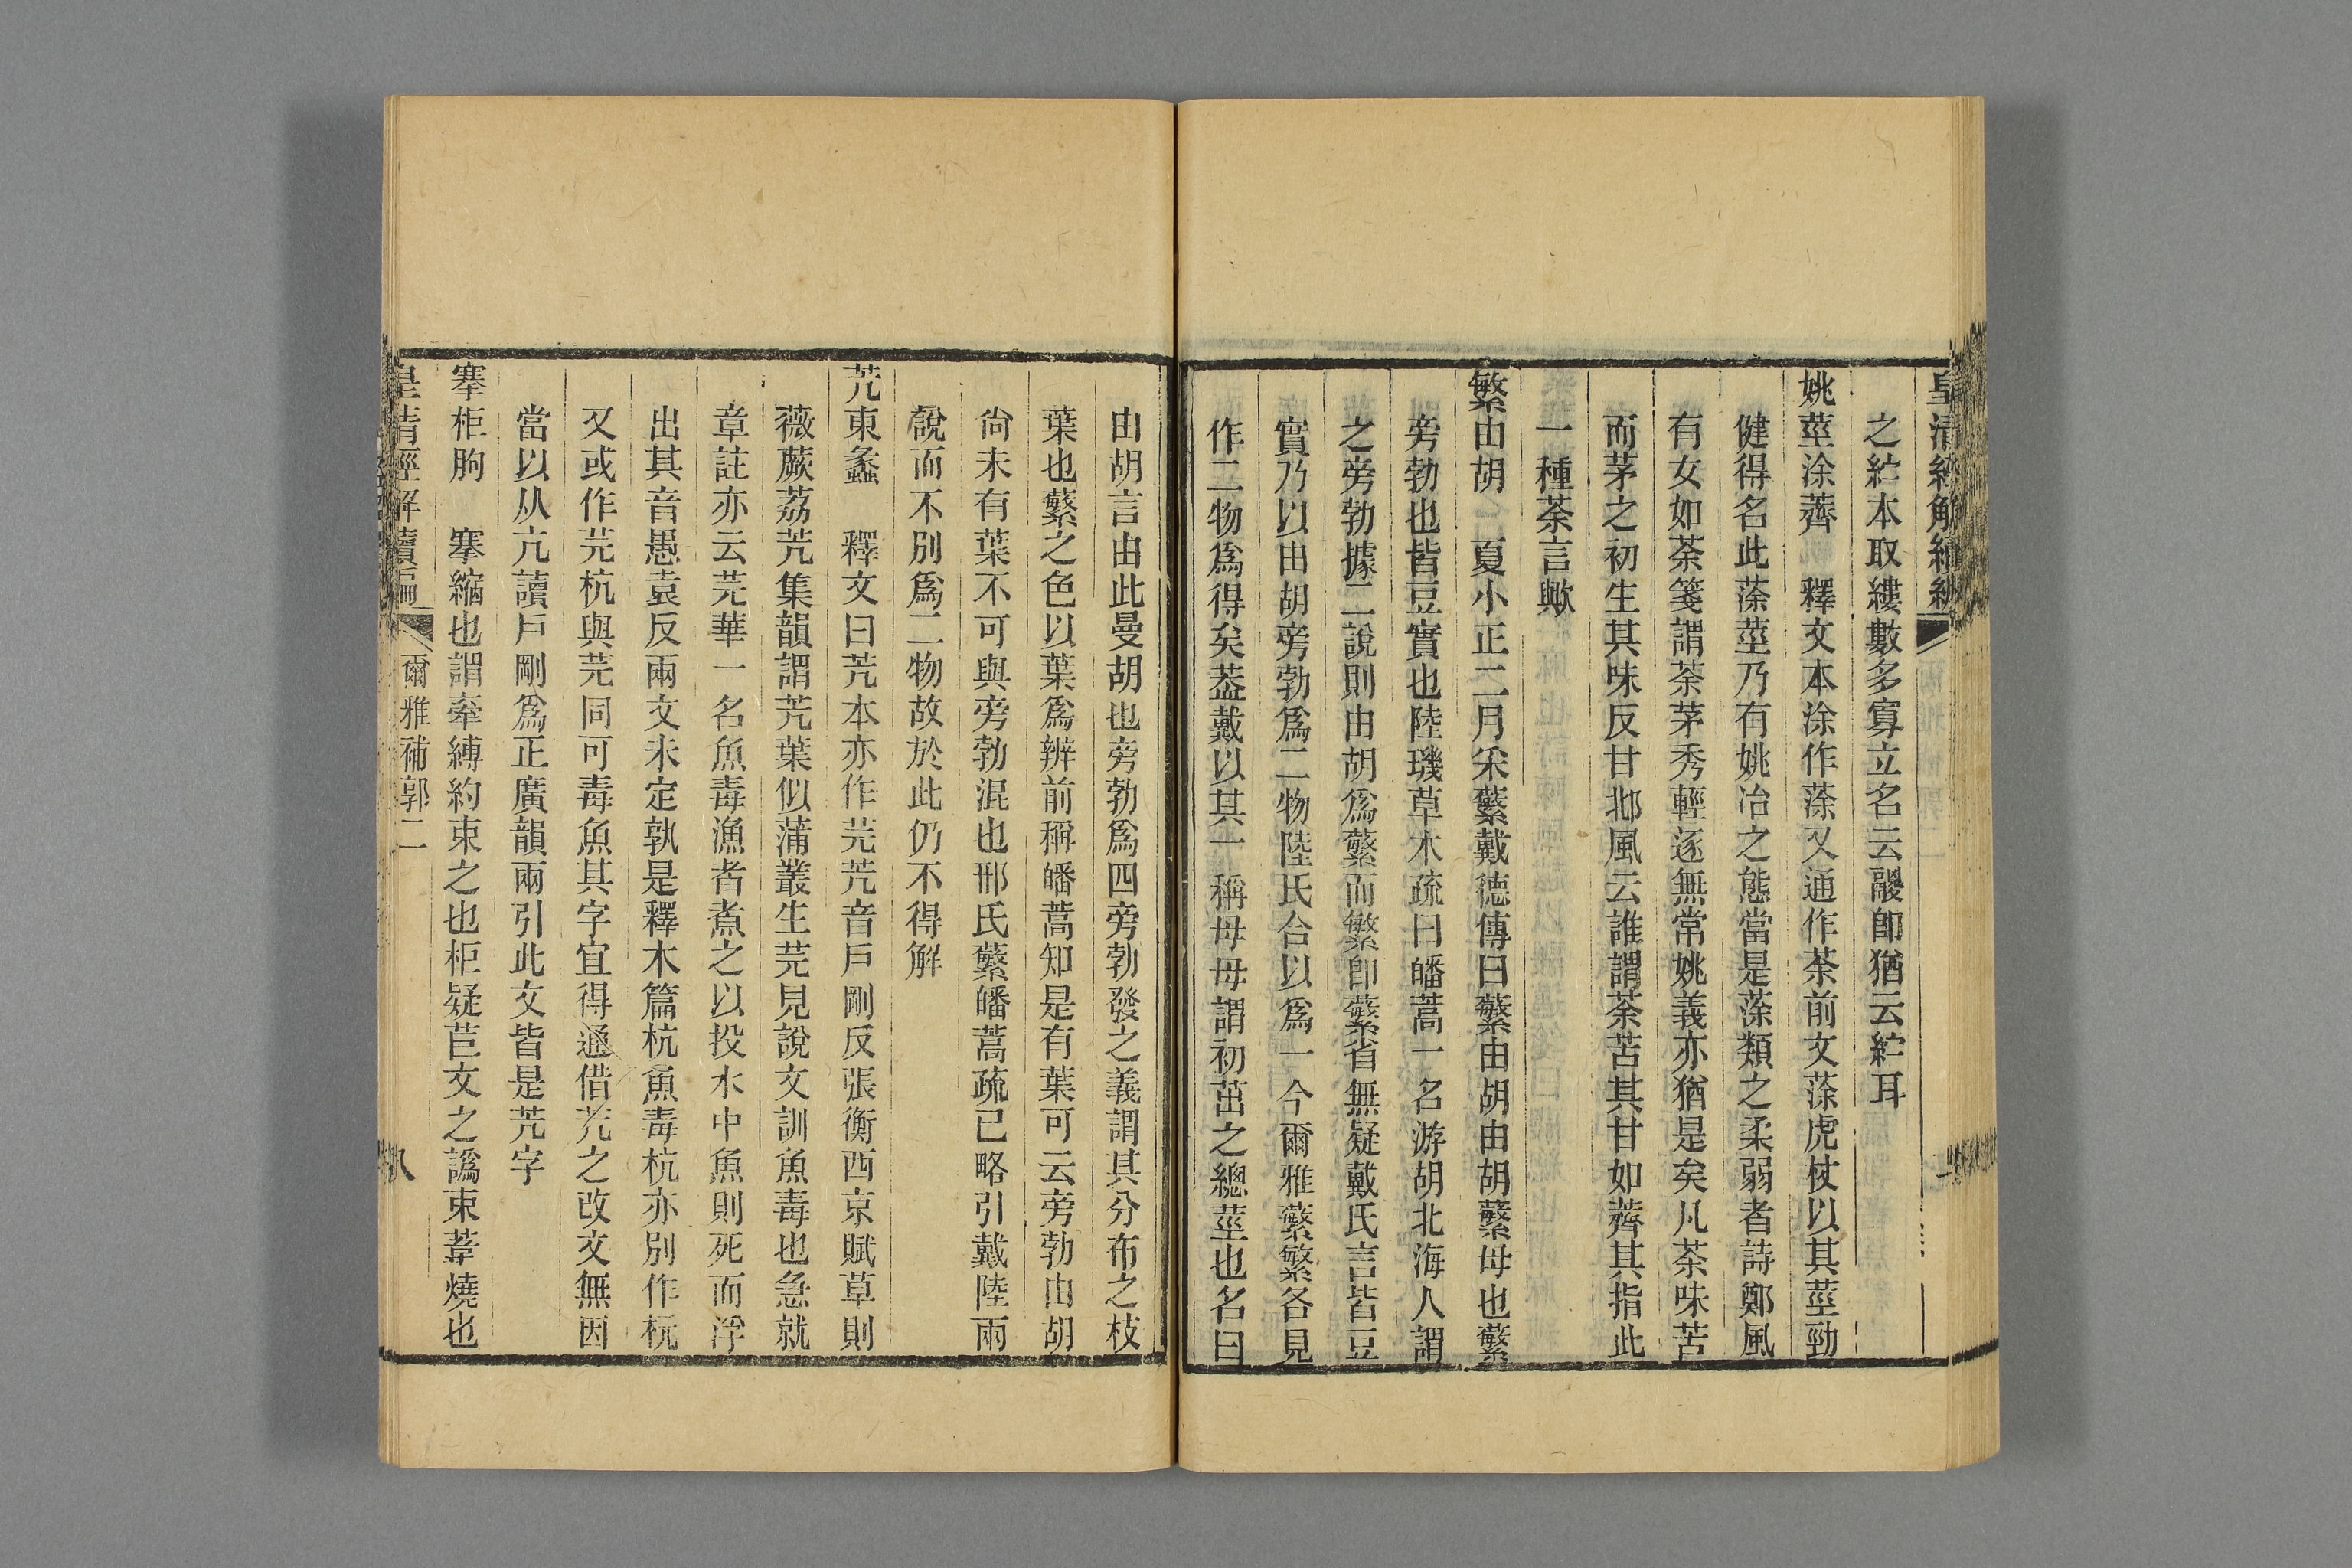 之紵本取縷數多寡立名云
姚莖涂薺　釋文本涂作蒤又通作荼前文蒤虎杖以其莖勁
健得名此蒤莖乃有姚冶之態當是蒤類之柔弱者詩鄭風
有女如荼箋謂荼茅秀輕逐無常姚義亦猶是矣凡荼味苦
而茅之初生其味反甘邶風云誰謂荼苦其甘如薺其指此
一種荼言歟
繁由胡　夏小正二月采蘩戴德傳曰蘩由胡由胡蘩母也蘩
旁勃也皆豆實也陸璣草木疏曰皤蒿一名游胡北海人謂
之旁勃據二說則由胡爲蘩而繁卽蘩省無疑戴氏言皆豆
實乃以由胡旁勃爲二物陸氏合以爲一今爾雅蘩繁各見
作二物爲得矣葢戴以其一稱母母謂初茁之總莖也名曰
由胡言由此曼胡也旁勃爲四旁勃發之義謂其分布之枝
葉也蘩之色以葉爲辨前稱皤蒿知是有葉可云旁勃由胡
尙未有葉不可與旁勃混也邢氏蘩皤蒿疏已略引戴陸兩
說而不別爲二物故於此仍不得解
荒東蠡　釋文曰荒本亦作芫荒音戶剛反張衡西京賦草則
薇蕨荔荒集韻謂荒葉似蒲叢生芫見說文訓魚毒也急就
章註亦云芫華一名魚毒漁者煮之以投水中魚則死而浮
出其音愚袁反兩文未定孰是釋木篇杬魚毒杬亦別作杬
又或作芫杬與芫同可毒魚其字宜得通借荒之改文無因
當以从亢讀戶剛爲正廣韻兩引此文皆是荒字
搴柜朐　搴縮也謂牽縛約束之也柜疑苣文之譌束葦燒也
皇清經解續編　爾雅補郭二　八